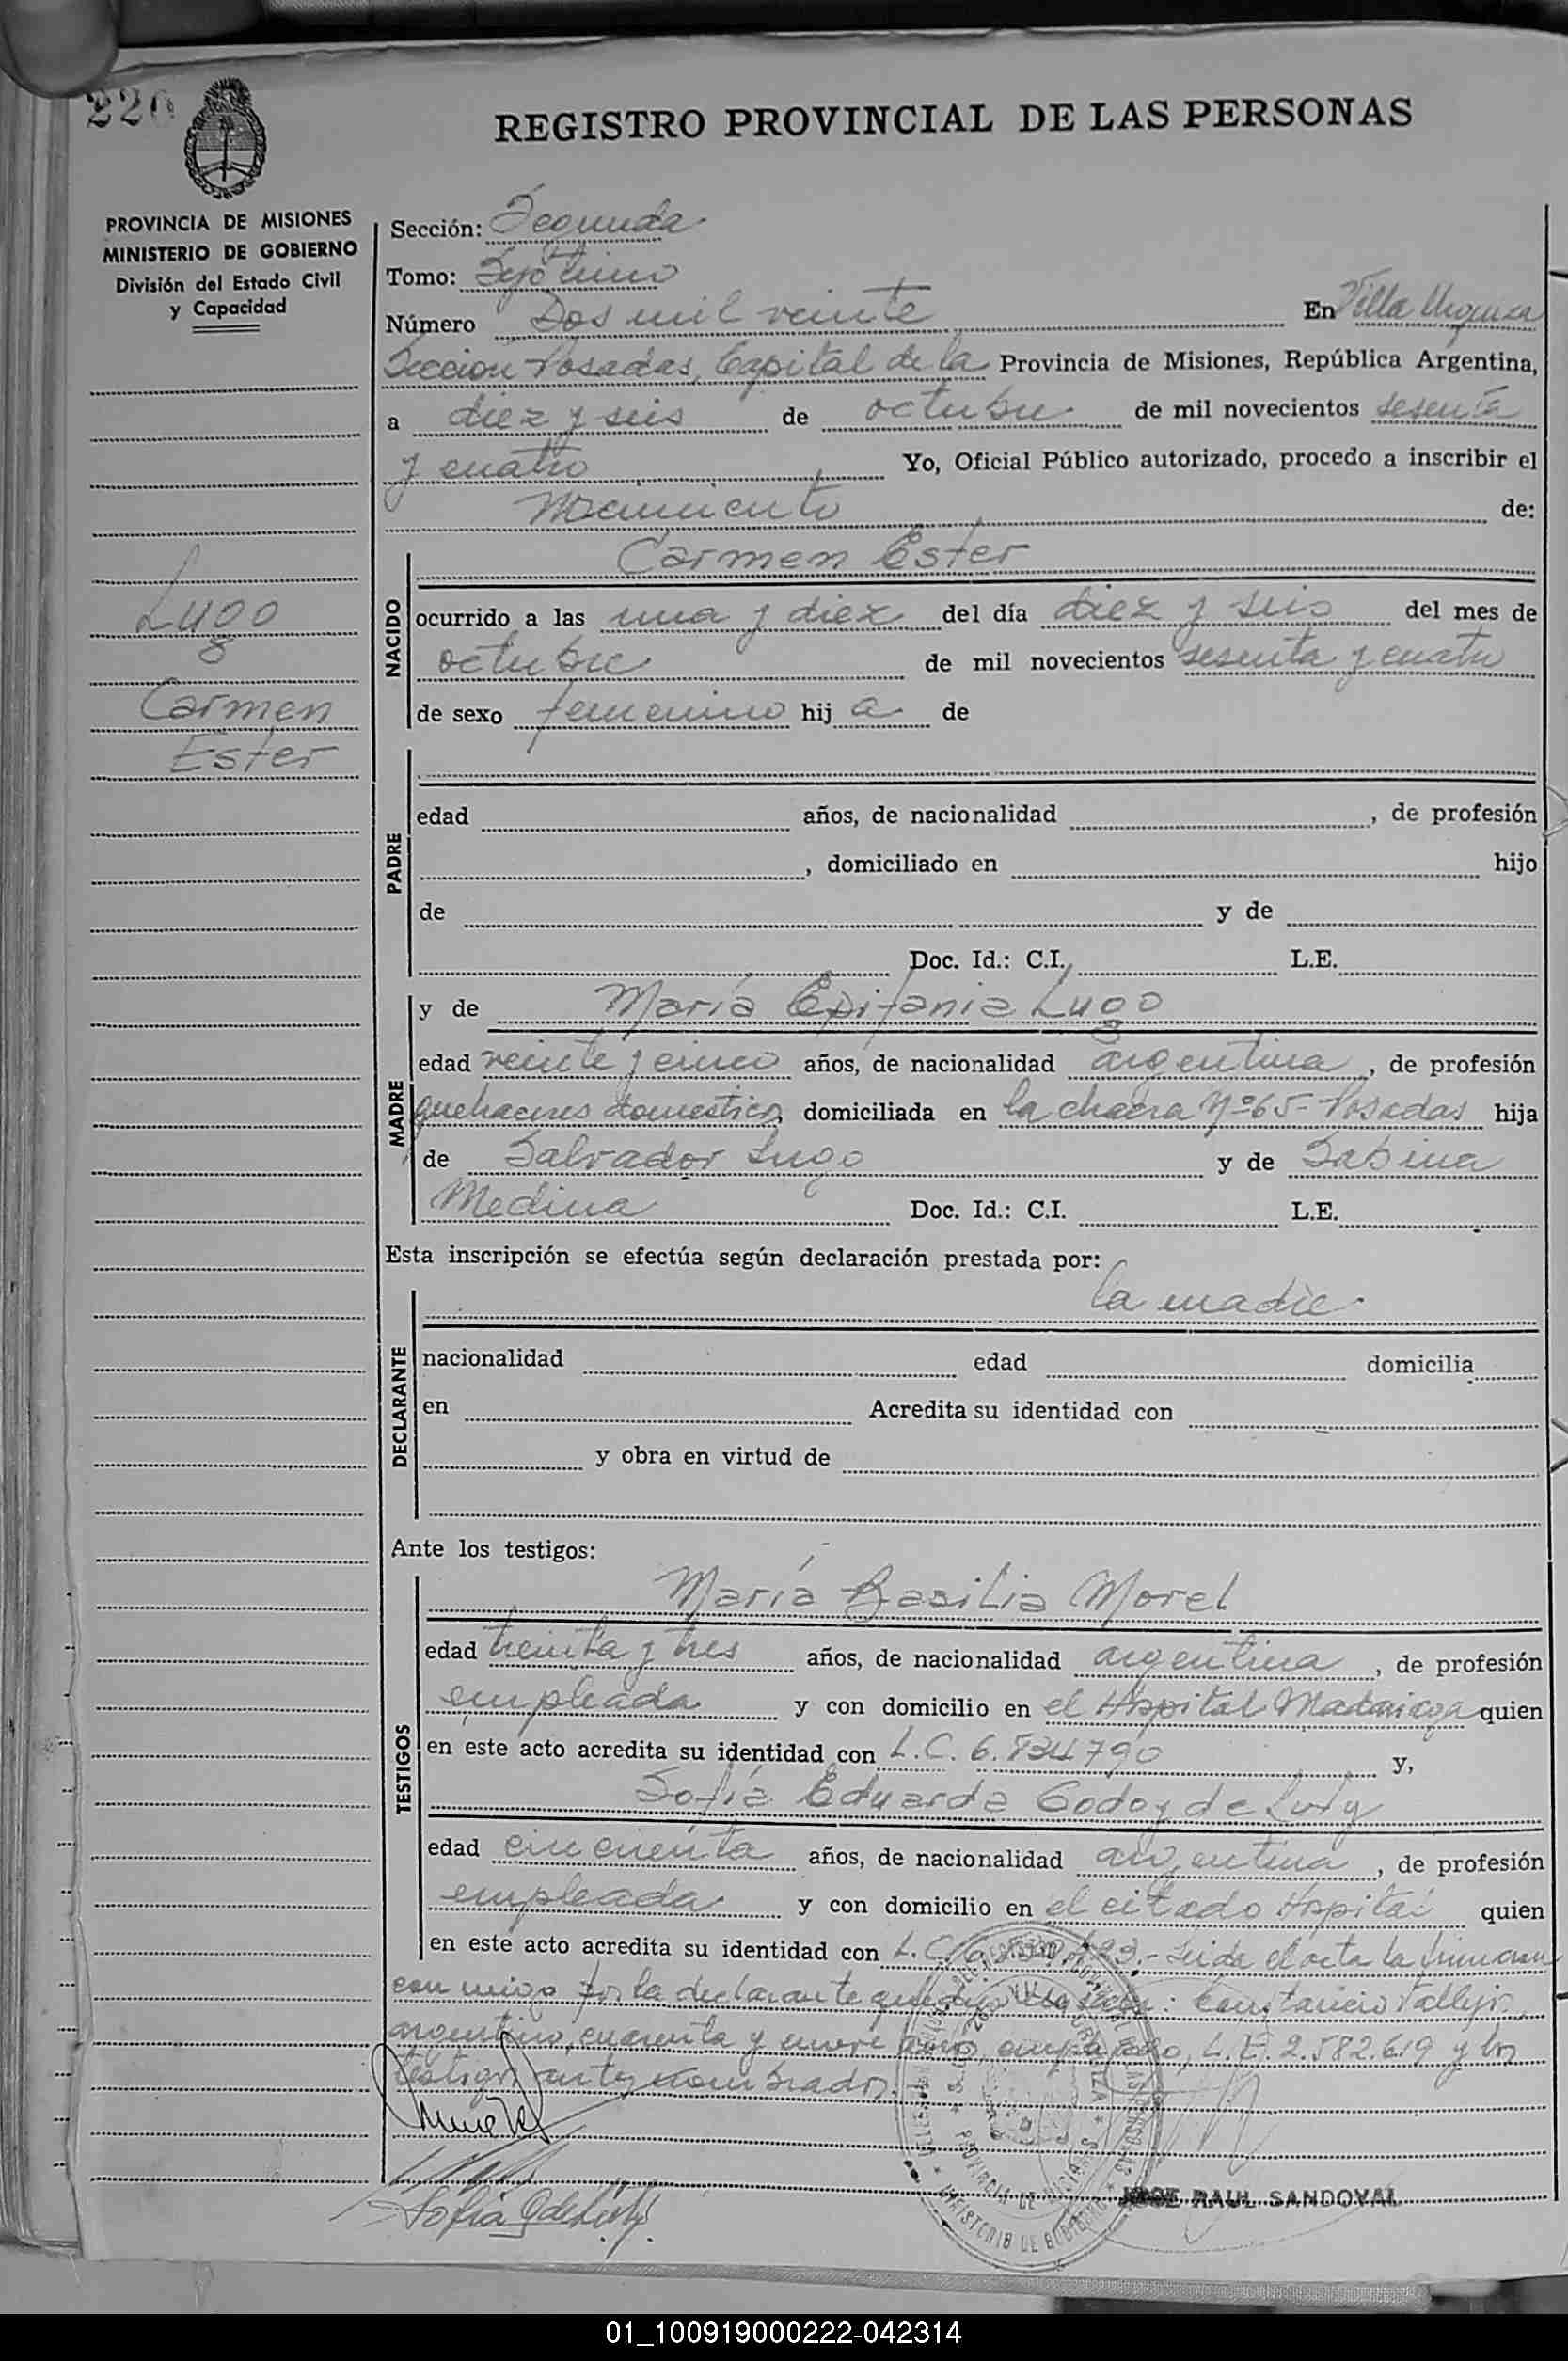 220
REGISTRO PROVINCIAL DE LAS PERSONAS
PROVINCIA DE MISIONES
MINISTERIO DE GOBIERNO
División del Estado Civil
y Capacidad
Lugo
Carmen
Ester
Sección: Segunda
Tomo: Septimo
Número Dos mil veinte En Villa Urquiza
Sección Posadas, Capital de la Provincia de Misiones, República Argentina,
a diez y seis de octubre de mil novecientos sesenta
y cuatro Yo, Oficial Público autorizado, procedo a inscribir el
Nacimiento de:
NACIDO
Carmen Ester
ocurrido a las una y diez del día diez y seis del mes de
octubre de mil novecientos sesenta y cuatro
de sexo femenino hij a de
PADRE
edad años, de nacionalidad , de profesión
, domiciliado en hijo
de y de
Doc. Id.: C.I. L.E.
MADRE
y de María Epifania Lugo
edad veinte y cinco años, de nacionalidad argentina, de profesión
quehaceres domesticos, domiciliada en la chacra Nº65- Posadas hija
de Salvador Lugo y de Sabina
Medina Doc. Id.: C.I. L.E.
Esta inscripción se efectúa según declaración prestada por:
DECLARANTE
la madre
nacionalidad edad domicilia
en Acredita su identidad con
y obra en virtud de
Ante los testigos:
TESTIGOS
María Basilia Morel
edad treinta y tres años, de nacionalidad argentina, de profesión
empleada y con domicilio en el Hospital Madariaga quien
en este acto acredita su identidad con L.C. 6.834790 y,
Sofía Eduarda Godoy de
edad cincuenta años, de nacionalidad argentina, de profesión
empleada y con domicilio en el citado Hospital quien
en este acto acredita su identidad con L.C. Leida el acta la firmaron
conmigo por la declarante Constancio Vallejos
argentino, cuarenta y nueve años, empleado, L.E. 2.582.619 y los
testigos antes nombrados.
JOSE RAUL SANDOVAL
01_100919000222-042314